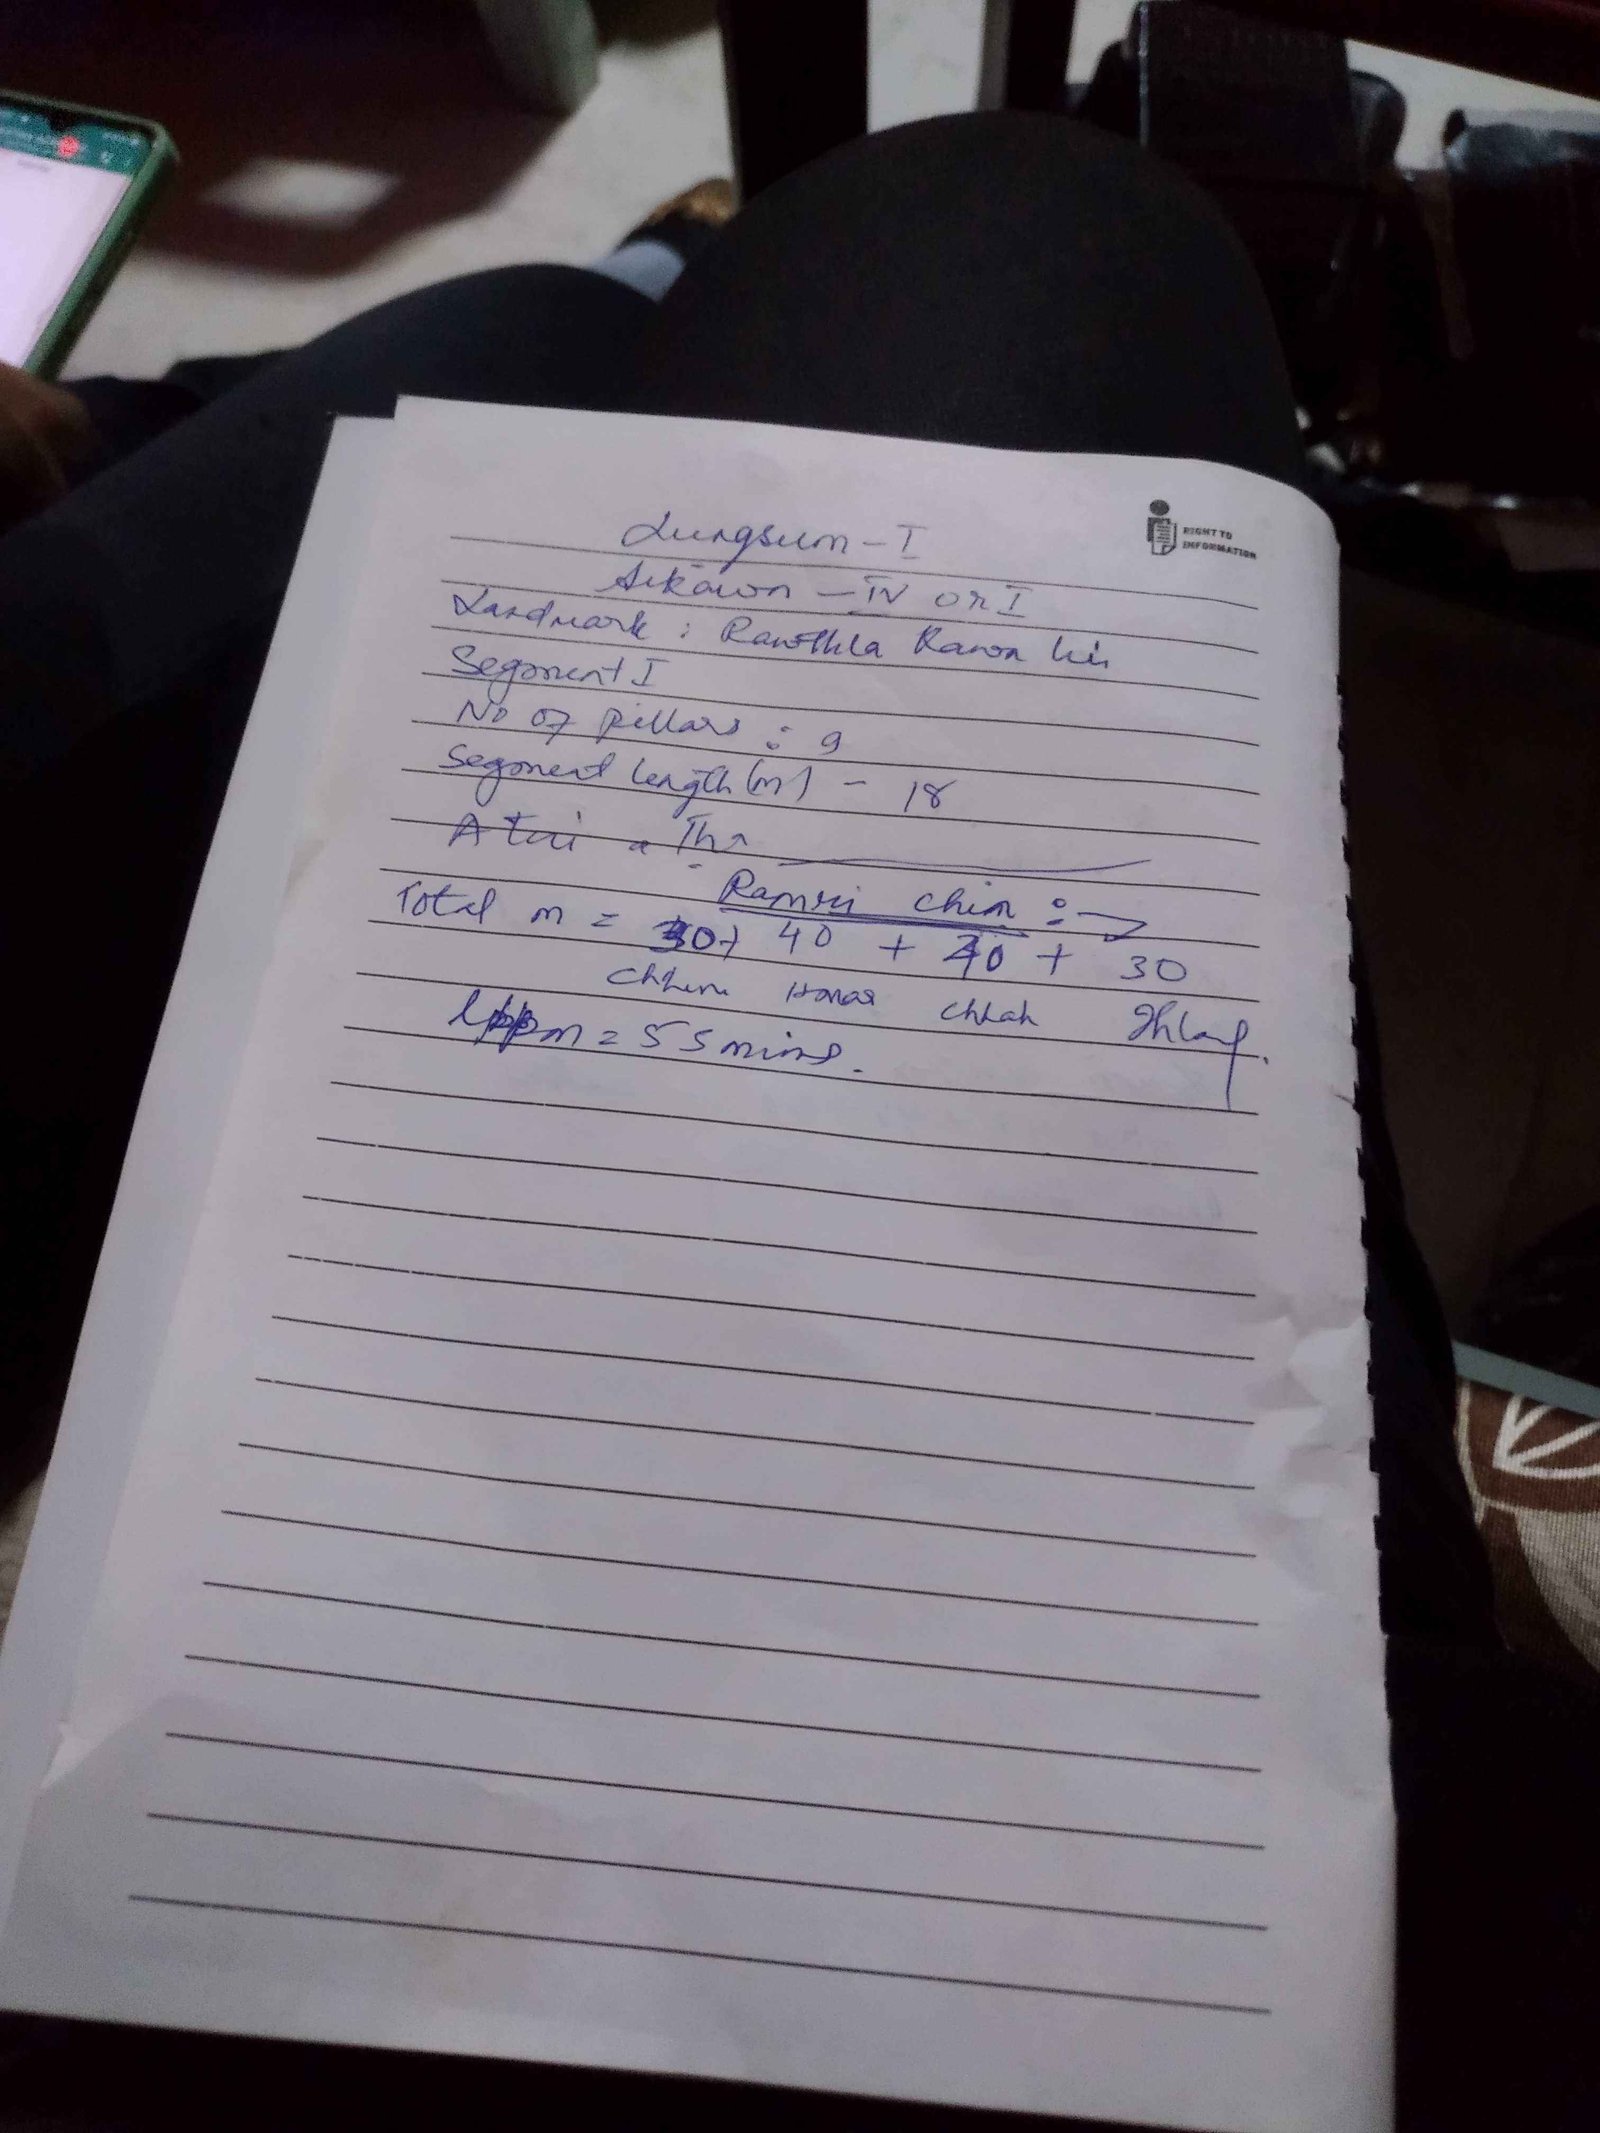 RIGHT TO
INFORMATION
Lungsum - I
Sikawn - IV or I
Landmark : Rawthla Kawn
Segment I
No of pillars : 9
Segment length (m) - 18
A tui
Ramri chin :
Total m = 30 + 40 + 40 + 30
Chhim Hmar Chhak Thlang
= 55 mins.